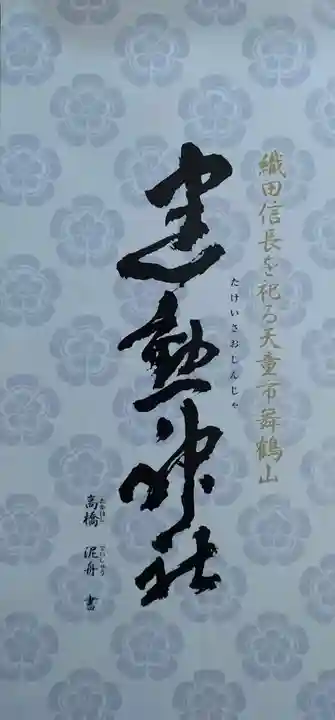 織田信長を祀る天童市舞鶴山
たけいさおじんじゃ
建勲神社
高橋 泥舟 書
たかはし でいしゅう